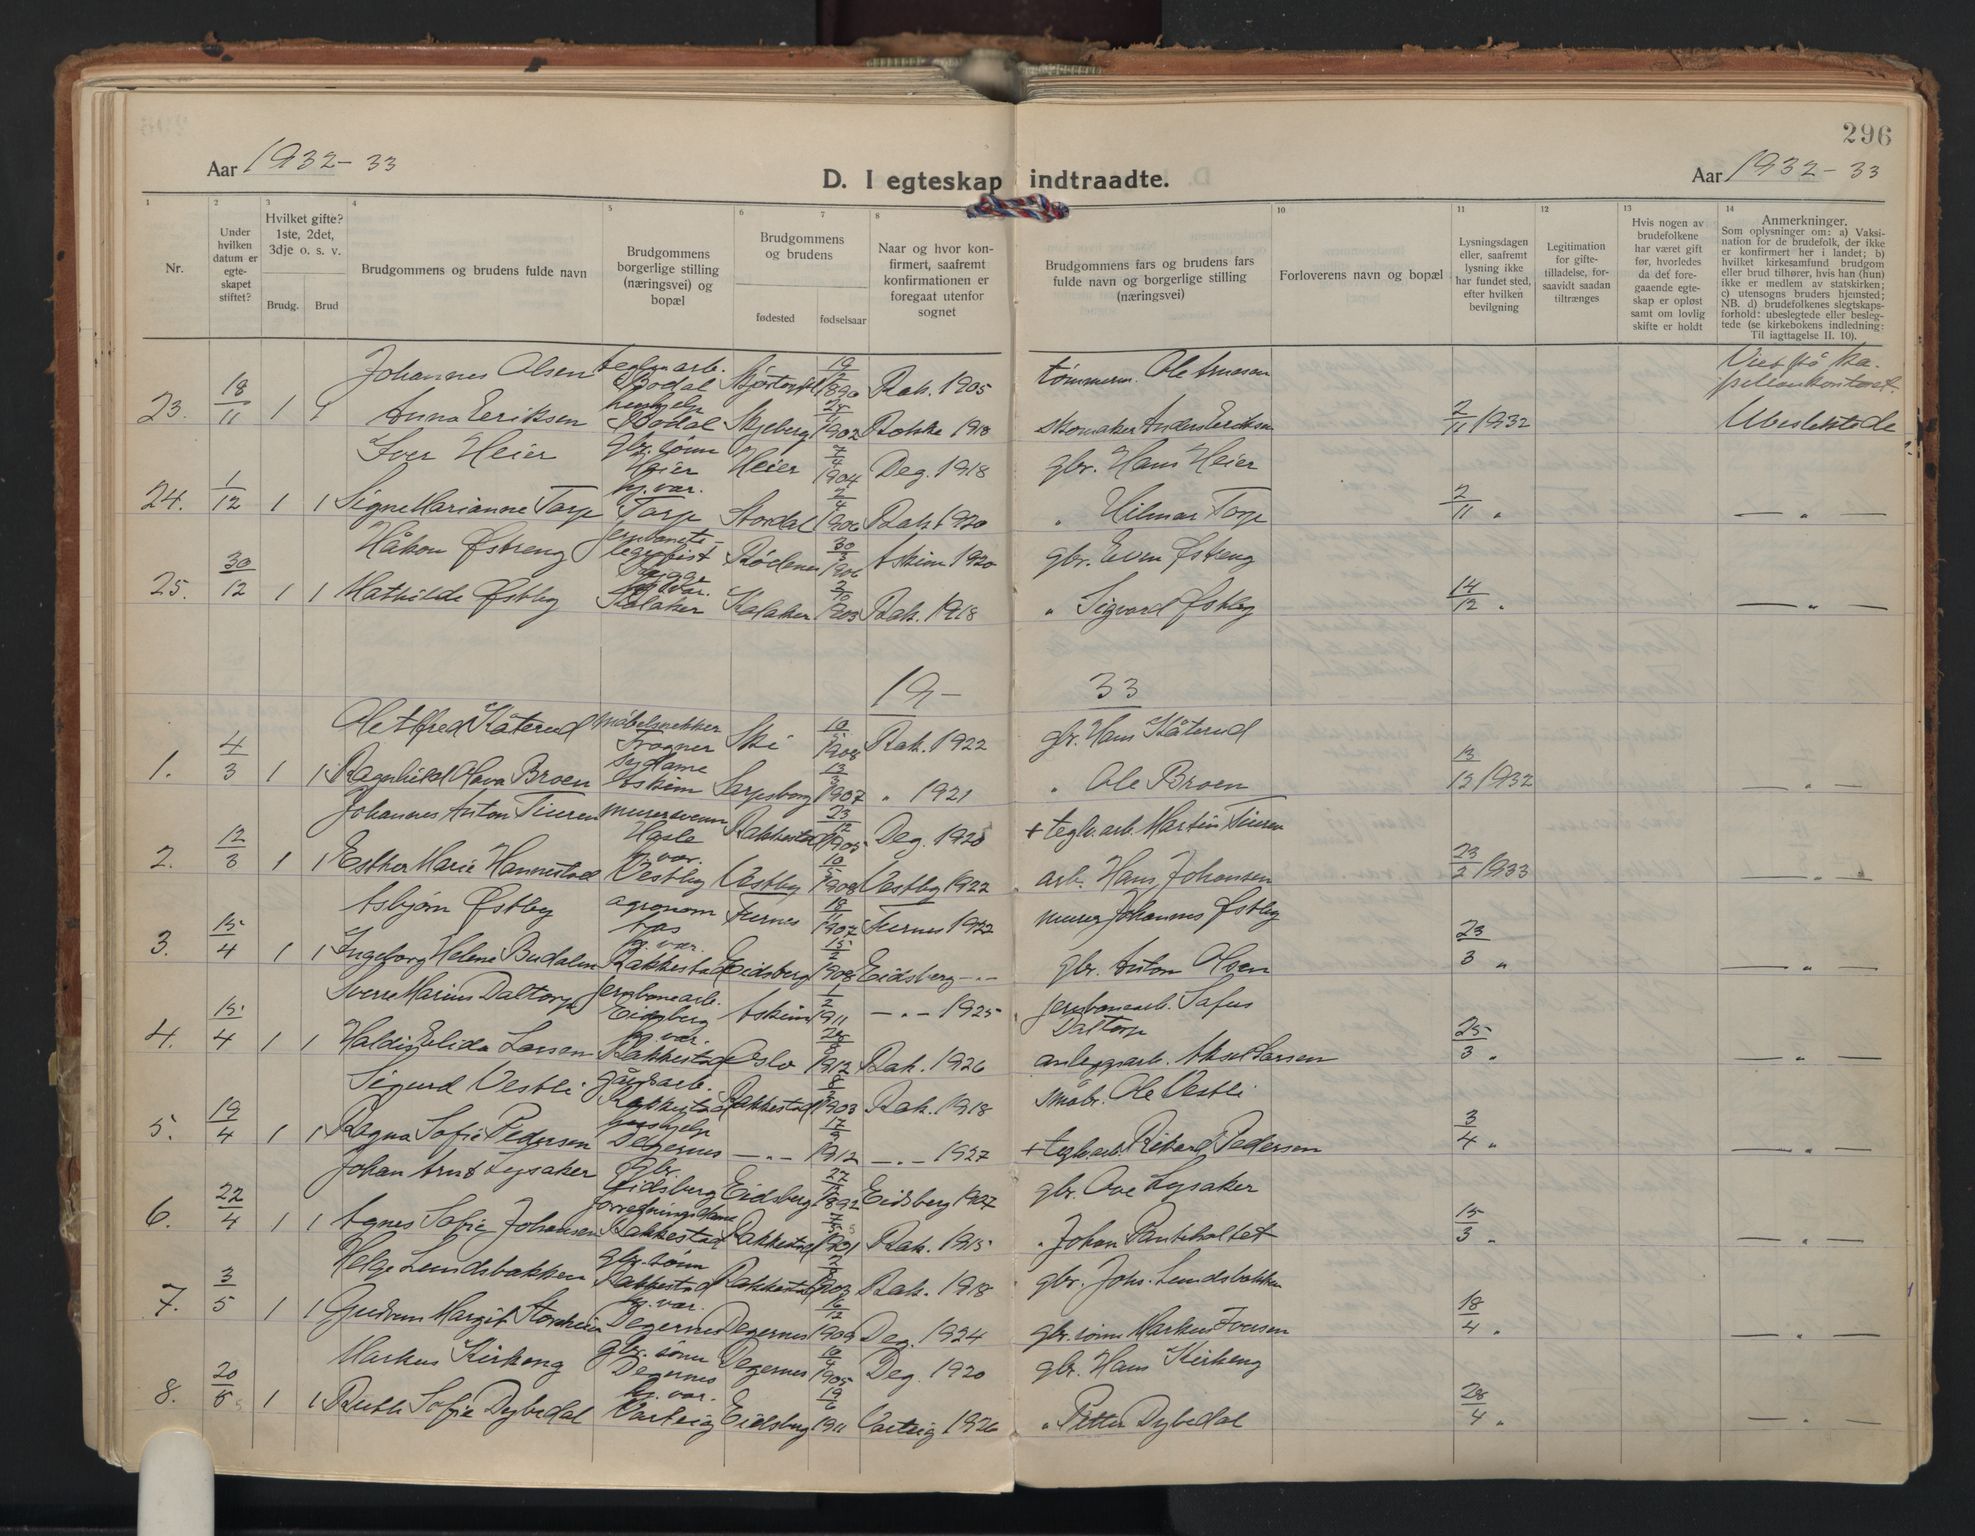 296
Aar 1932-33
D. I egteskap indtraadte.
Aar 1932-33
1 2 3 4 5 6 7 8 10 11 12 13 14
Nr.
Under hvilken datum er egte-skapet stiftet?
Hvilket gifte? 1ste, 2det, 3dje o. s. v.
Brudg. Brud
Brudgommens og brudens fulde navn
Brudgommens borgerlige stilling (næringsvei) og bopæl
Brudgommens og brudens
fødested fødselsaar
Naar og hvor kon-firmert, saafremt konfirmationen er foregaat utenfor sognet
Brudgommens fars og brudens fars fulde navn og borgerlige stilling (næringsvei)
Forloverens navn og bopæl
Lysningsdagen eller, saafremt lysning ikke har fundet sted, efter hvilken bevilgning
Legitimation for gifte-tilladelse, for-saavidt saadan tiltrænges
Hvis nogen av brudefolkene har været gift før, hvorledes da det fore-gaaende egte-skap er opløst samt om lovlig skifte er holdt
Anmerkninger.
Som oplysninger om: a) Vaksi-nation for de brudefolk, der ikke er konfirmert her i landet; b) hvilket kirkesamfund brudgom eller brud tilhører, hvis han (hun) ikke er medlem av statskirken; c) utensogns bruders hjemsted; NB. d) brudefolkenes slegtskaps-forhold: ubeslegtede eller besleg-tede (se kirkebokens indledning: Til iagttagelse II. 10).
Johannes Olsen Bodal 1890 Rak. 1905 tømmerm. Ole Arnesen Viet på ka-pellankontoret.
23. 18/11 1 1 Anna Eriksen hushjelp Bodal Skjeberg 1902 Rokke 1918 skomaker Anders Eriksen 2/11 1932 Ubeslektede
Iver Heier gbr. sønn Heier Heier 1904 Deg. 1918 gbr. Hans Heier
24. 1/12 1 1 Signe Marianne Torp hj. vær. Torp Stordal 2/4 1906 Rak 1920 " Hilmar Torp 2/11 " — " —
Håkon Østreng Rødenes 1906 Askim 1920 gbr. Even Østreng
25. 30/12 1 1 Mathilde Østby hj. vær. Kolaker Kalaker 1903 Rak. 1918 " Sigvard Østby 14/12 " — " —
19- 33
Ole Alfred Kåterud møbelsnekker Frogner Ski 1908 Rak. 1922 gbr. Hans Kåterud
1. 4/3 1 1 Ragnhild Olava Broen sydame Askim Sarpsborg 1907 " 1921 " Ole Broen 13/12 1932 — " —
Johannes Anton Tieren murersvenn Hasle Rakkestad 23/12 1905 Deg. 1920 + teglv.arb. Martin Tieren
2. 12/3 1 1 Esther Marie Hannestad hj. vær. Vestby Vestby 10/5 1908 Vestby 1922 arb. Hans Johansen 23/2 1933 — " —
Asbjørn Østby agronom Ås 18/11 1907 1922 murer Johannes Østby
3. 15/4 1 1 Ingeborg Helene Budalen hj. vær. Rakkestad Eidsberg 15/2 1908 Eidsberg — " — gbr. Anton Olsen 23/3 " — " —
Sverre Marius Daltorp jernbanearb. Eidsberg Askim 1/2 1911 — " — 1925 jernbanearb. Sofus Daltorp
4. 15/4 1 1 Haldis Elida Larsen hj. vær. Rakkestad Oslo 1912 Rak. 1926 anleggsarb. Aksel Larsen 25/3 " — " —
Sigurd Vestli gårdsarb. Rakkestad Rakkestad 1903 Rak. 1918 småbr. Ole Vestli
5. 19/4 1 1 Ragna Sofie Pedersen hushjelp Degernes — " — 1912 — " — 1927 + teglv.arb. Rikard Pedersen 3/4 " — " —
Johan Arnt Lysaker gbr. Eidsberg Eidsberg 1892 Eidsberg 1907 gbr. Ove Lysaker
6. 22/4 1 1 Agnes Sofie Johansen forretningsdame Rakkestad Rakkestad Rak. 1915 " Johan 15/3 " — " —
Helge Lundsbakken gbr. sønn Rakkestad Rakkestad 1903 Rak. 1918 gbr. Johs. Lundsbakken
7. 3/5 1 1 Gudrun Margit hj. vær. Degernes Degernes 1909 Deg. 1924 gbr. sønn Markus Iversen 18/4 " — " —
Markus Kirkeng gbr. sønn Degernes Degernes 10/4 1905 Deg. 1920 gbr. Hans Kirkeng
8. 20/5 1 1 Ruth Sofie Dybedal hj. vær. Varteig Eidsberg 19/6 1911 Varteig 1926 " Petter Dybedal 28/4 " — " —